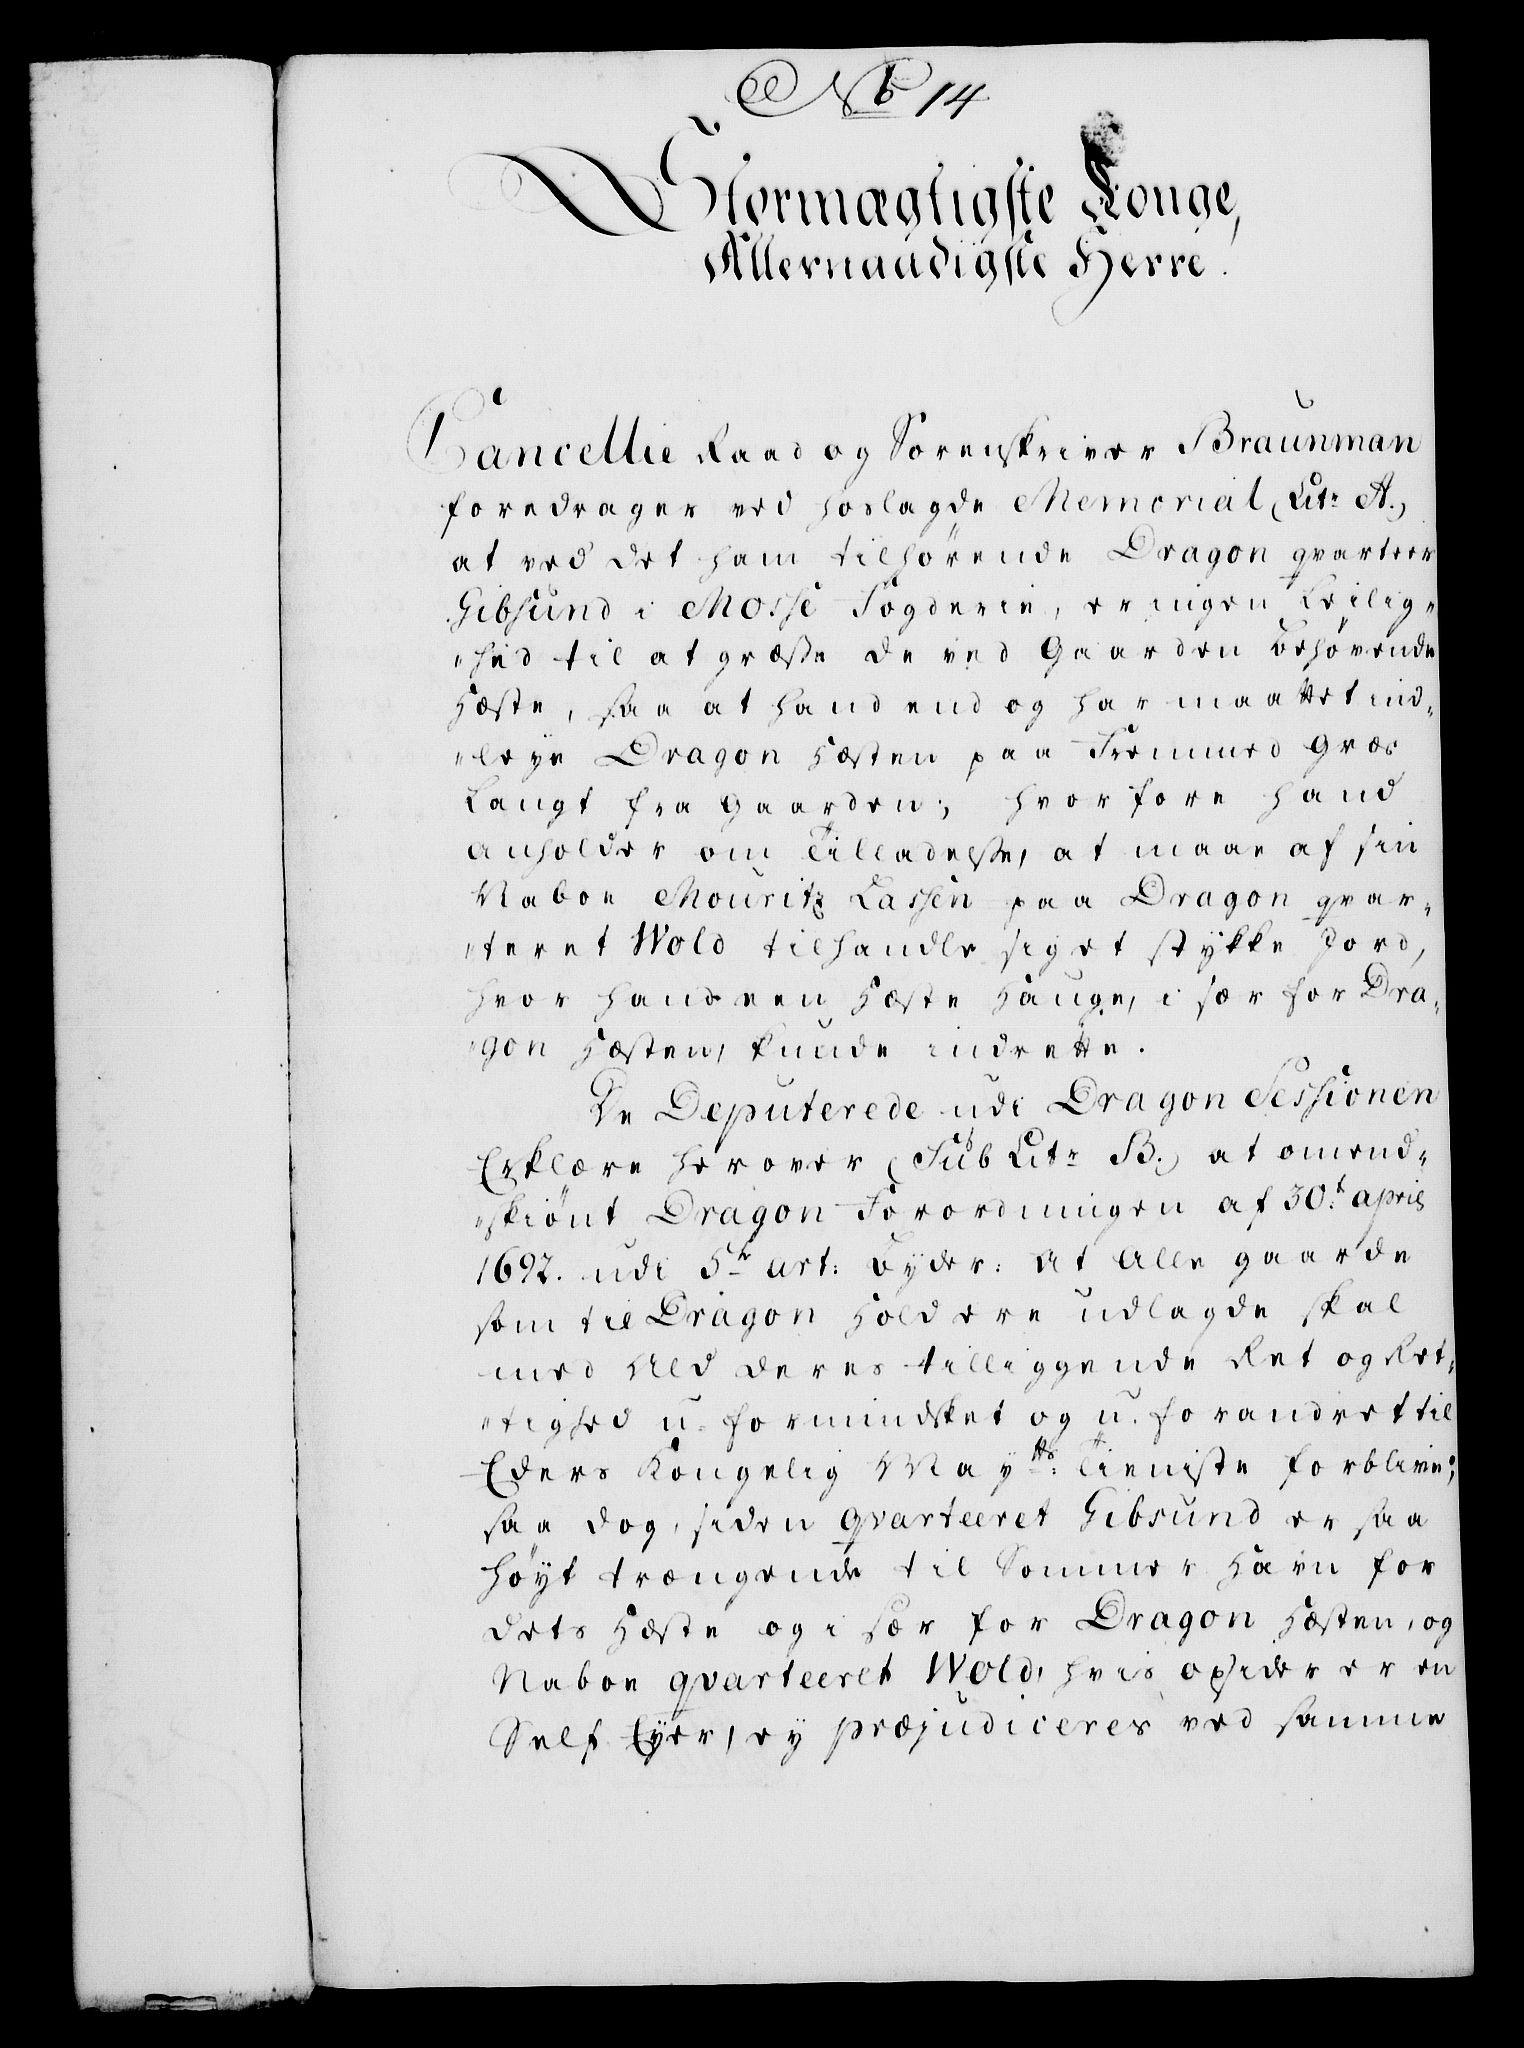 No 14
Stormægtigste Konge,
Allernaadigste Herre.
Cancellie Raad og Sorenskriver Braunman
foredrager ved hoslagde Memorial (Litr A.)
at ved det ham tilhørende Dragon qvarteer
Gibsund i Mosse Fogderie, er ingen Leilig„
„hed til at græsse de ved Gaarden behøvende
Hæste, saa at hand end og har maattet ind„
„leye Dragon Hæsten paa Fremmed Græs
Langt fra Gaarden; hvorfore hand
anholder om Tilladelsse, at maae af sin
Naboe Mouritz Lassen paa Dragon qvar„
„teret Wold tilhandle sig et stykke Jord,
hvor hand een Hæste Hauge, i sær for Dra„
„gon Hæsten, kunde indrette.
De Deputerede udi Dragon Sessionen
Erklære herover (Sub Litr B.) at omend„
„skiønt Dragon Forordningen af 30.t april
1692. udi 5te art: byder: At Alle gaarde
som til Dragon Hold ere udlagde skal
med All deres tilliggende Ret og Ret„
„tighed u-formindsket og u-forandret til
Eders Kongelig Mayts: Tieniste forblive;
saa dog, siden qvarteeret Gibsund er saa
høyt trængende til Sommer Havn for
dets Hæste og i sær for Dragon Hæsten, og
Naboe qvarteeret Wold, hvis opsider er en
Self Eyer, ey præjudiceres ved samme